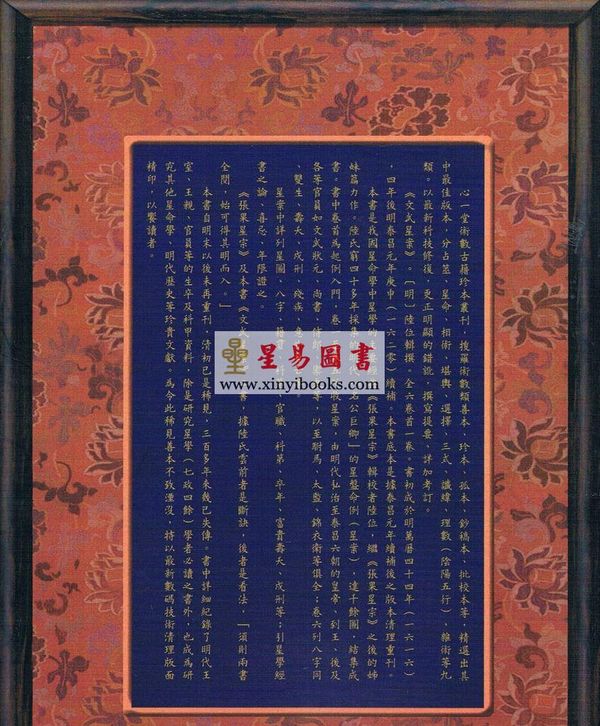 心一堂術數古籍珍本叢刊，搜羅術數類善本、珍本、孤本、鈔稿本、批校本等，精選出其
中最佳版本，分占筮、星命、相術、堪輿、選擇、三式、讖緯、理數（陰陽五行）、雜術等九
類。以最新科技修復，更正明顯的錯訛，撰寫提要，詳加考訂。
《文武星案》，〔明〕陸位輯撰。全六卷首一卷。書初成於明萬曆四十四年（一六一六）
，四年後明泰昌元年庚申（一六二零）續補。本書底本是據泰昌元年續補後之版本清理重刊。
本書是我國星命學中星學的
《張果星宗》輯校者陸位，繼《張果星宗》之後的姊
妹篇力作。陸氏窮四十多年採集
名公巨卿」的星盤命例（星案），達千餘圖，結集成
書。書中卷首為起例入門，卷一
收星案。由明代弘治至泰昌六朝的皇帝，到王、後及
各等官員如文武狀元、尚書、侍郎
等，以至駙馬、太監、錦衣衛等俱全；卷六列八字同
、雙生、壽夭、戍刑、殘疾、
星案中詳列星圖、八字、
官職、科第、卒年、富貴壽夭、戍刑等；引星學經
書之論、喜忌、年限證之。
《張果星宗》及本書《文武
書，據陸氏雲前者是斷訣，後者是看法，「須則兩書
全閱，始可得其明而入。」
本書自明末以後未再重刊，清初已是稀見，三百多年來幾已失傳。書中詳細紀錄了明代王
室、王親、官員等的生卒及科甲資料，除是研究星學（七政四餘）學者必讀之書外，也成為研
究其他星命學、明代歷史等珍貴文獻。為令此稀見善本不致湮沒，特以最新數碼技術清理版面
精印，以饗讀者。
星易圖書
www.xinyibooks.com